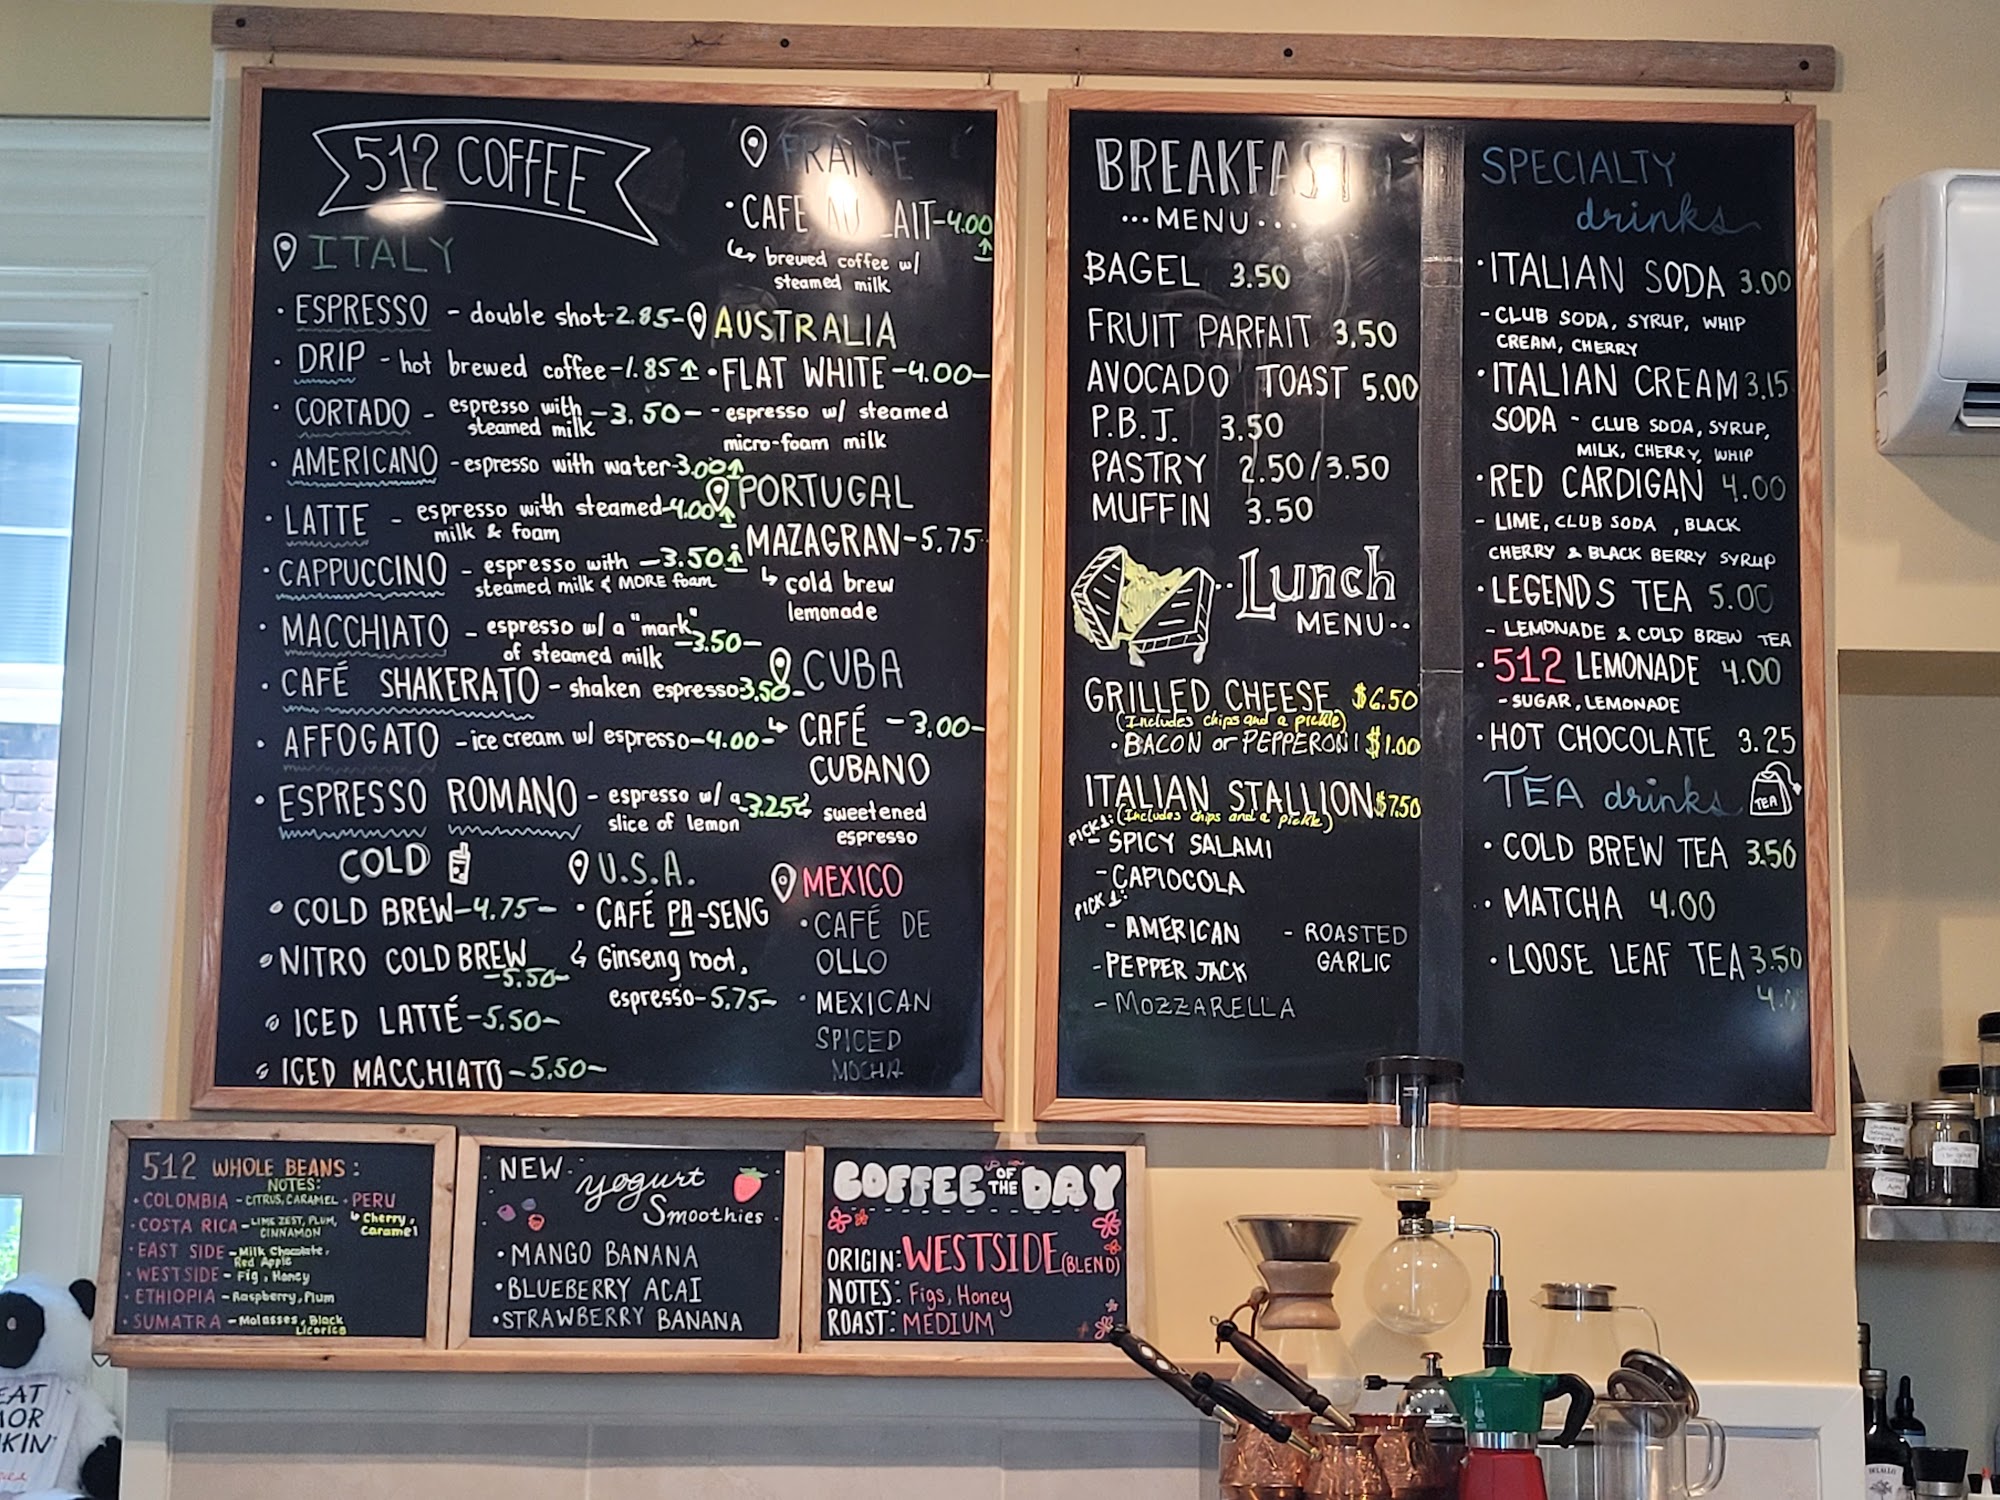 512 COFFEE
ITALY
ESPRESSO - double shot-2.85-
DRIP - hot brewed coffee-1.85↑
CORTADO - espresso with -3.50-
steamed milk
AMERICANO - espresso with water-3.00↑
LATTE - espresso with steamed-4.00↑
milk & foam
CAPPUCCINO - espresso with -3.50↑
steamed milk & MORE foam
MACCHIATO - espresso w/ a "mark"
of steamed milk -3.50-
CAFÉ SHAKERATO - shaken espresso-3.50-
AFFOGATO - ice cream w/ espresso-4.00-
ESPRESSO ROMANO - espresso w/ a -3.25
slice of lemon
COLD
COLD BREW-4.75-
NITRO COLD BREW
-5.50-
ICED LATTÉ-5.50-
ICED MACCHIATO-5.50-
FRANCE
CAFE AU LAIT-4.00↑
brewed coffee w/
steamed milk
AUSTRALIA
FLAT WHITE-4.00-
- espresso w/ steamed
micro-foam milk
PORTUGAL
MAZAGRAN-5.75-
cold brew
lemonade
CUBA
CAFÉ -3.00-
CUBANO
sweetened
espresso
U.S.A.
CAFÉ PA-SENG
Ginseng root,
espresso-5.75-
MEXICO
CAFÉ DE
OLLO
MEXICAN
SPICED
MOCHA
BREAKFAST
...MENU...
BAGEL 3.50
FRUIT PARFAIT 3.50
AVOCADO TOAST 5.00
P.B.J. 3.50
PASTRY 2.50/3.50
MUFFIN 3.50
Lunch
MENU..
GRILLED CHEESE $6.50
(Includes chips and a pickle)
BACON or PEPPERONI $1.00
ITALIAN STALLION $7.50
(Includes chips and a pickle)
PICK 1:
- SPICY SALAMI
- CAPIOCOLA
PICK 1:
- AMERICAN
- PEPPER JACK
- MOZZARELLA
- ROASTED
GARLIC
SPECIALTY
drinks
ITALIAN SODA 3.00
- CLUB SODA, SYRUP, WHIP
CREAM, CHERRY
ITALIAN CREAM 3.15
SODA - CLUB SODA, SYRUP,
MILK, CHERRY, WHIP
RED CARDIGAN 4.00
- LIME, CLUB SODA, BLACK
CHERRY & BLACK BERRY SYRUP
LEGENDS TEA 5.00
- LEMONADE & COLD BREW TEA
512 LEMONADE 4.00
- SUGAR, LEMONADE
HOT CHOCOLATE 3.25
TEA drinks
TEA
COLD BREW TEA 3.50
MATCHA 4.00
LOOSE LEAF TEA 3.50
512 WHOLE BEANS:
NOTES:
COLOMBIA - CITRUS, CARAMEL
COSTA RICA - LIME ZEST, PLUM,
CINNAMON
EAST SIDE - Milk Chocolate,
Red Apple
WESTSIDE - Fig, Honey
ETHIOPIA - Raspberry, Plum
SUMATRA - Molasses, Black
Licorice
PERU
Cherry,
Caramel
NEW yogurt
Smoothies
MANGO BANANA
BLUEBERRY ACAI
STRAWBERRY BANANA
COFFEE OF THE DAY
ORIGIN: WESTSIDE (BLEND)
NOTES: Figs, Honey
ROAST: MEDIUM